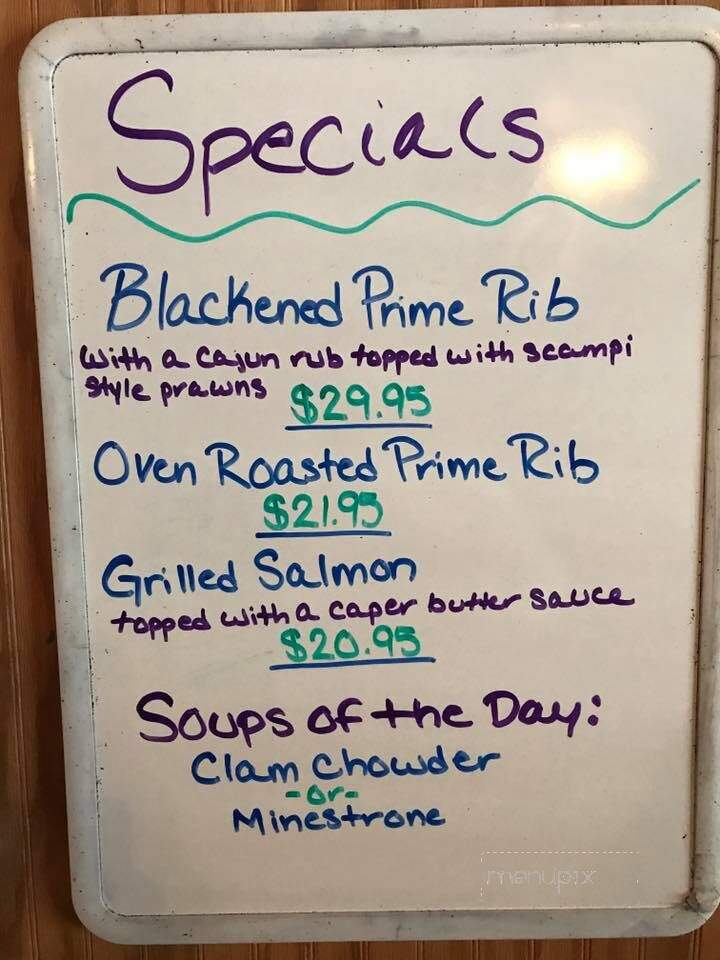 Specials
Blackened Prime Rib
with a cajun rub topped with scampi
style prawns $29.95
Oven Roasted Prime Rib
$21.95
Grilled Salmon
topped with a caper butter sauce
$20.95
Soups of the Day:
Clam Chowder
-or-
Minestrone
menupix